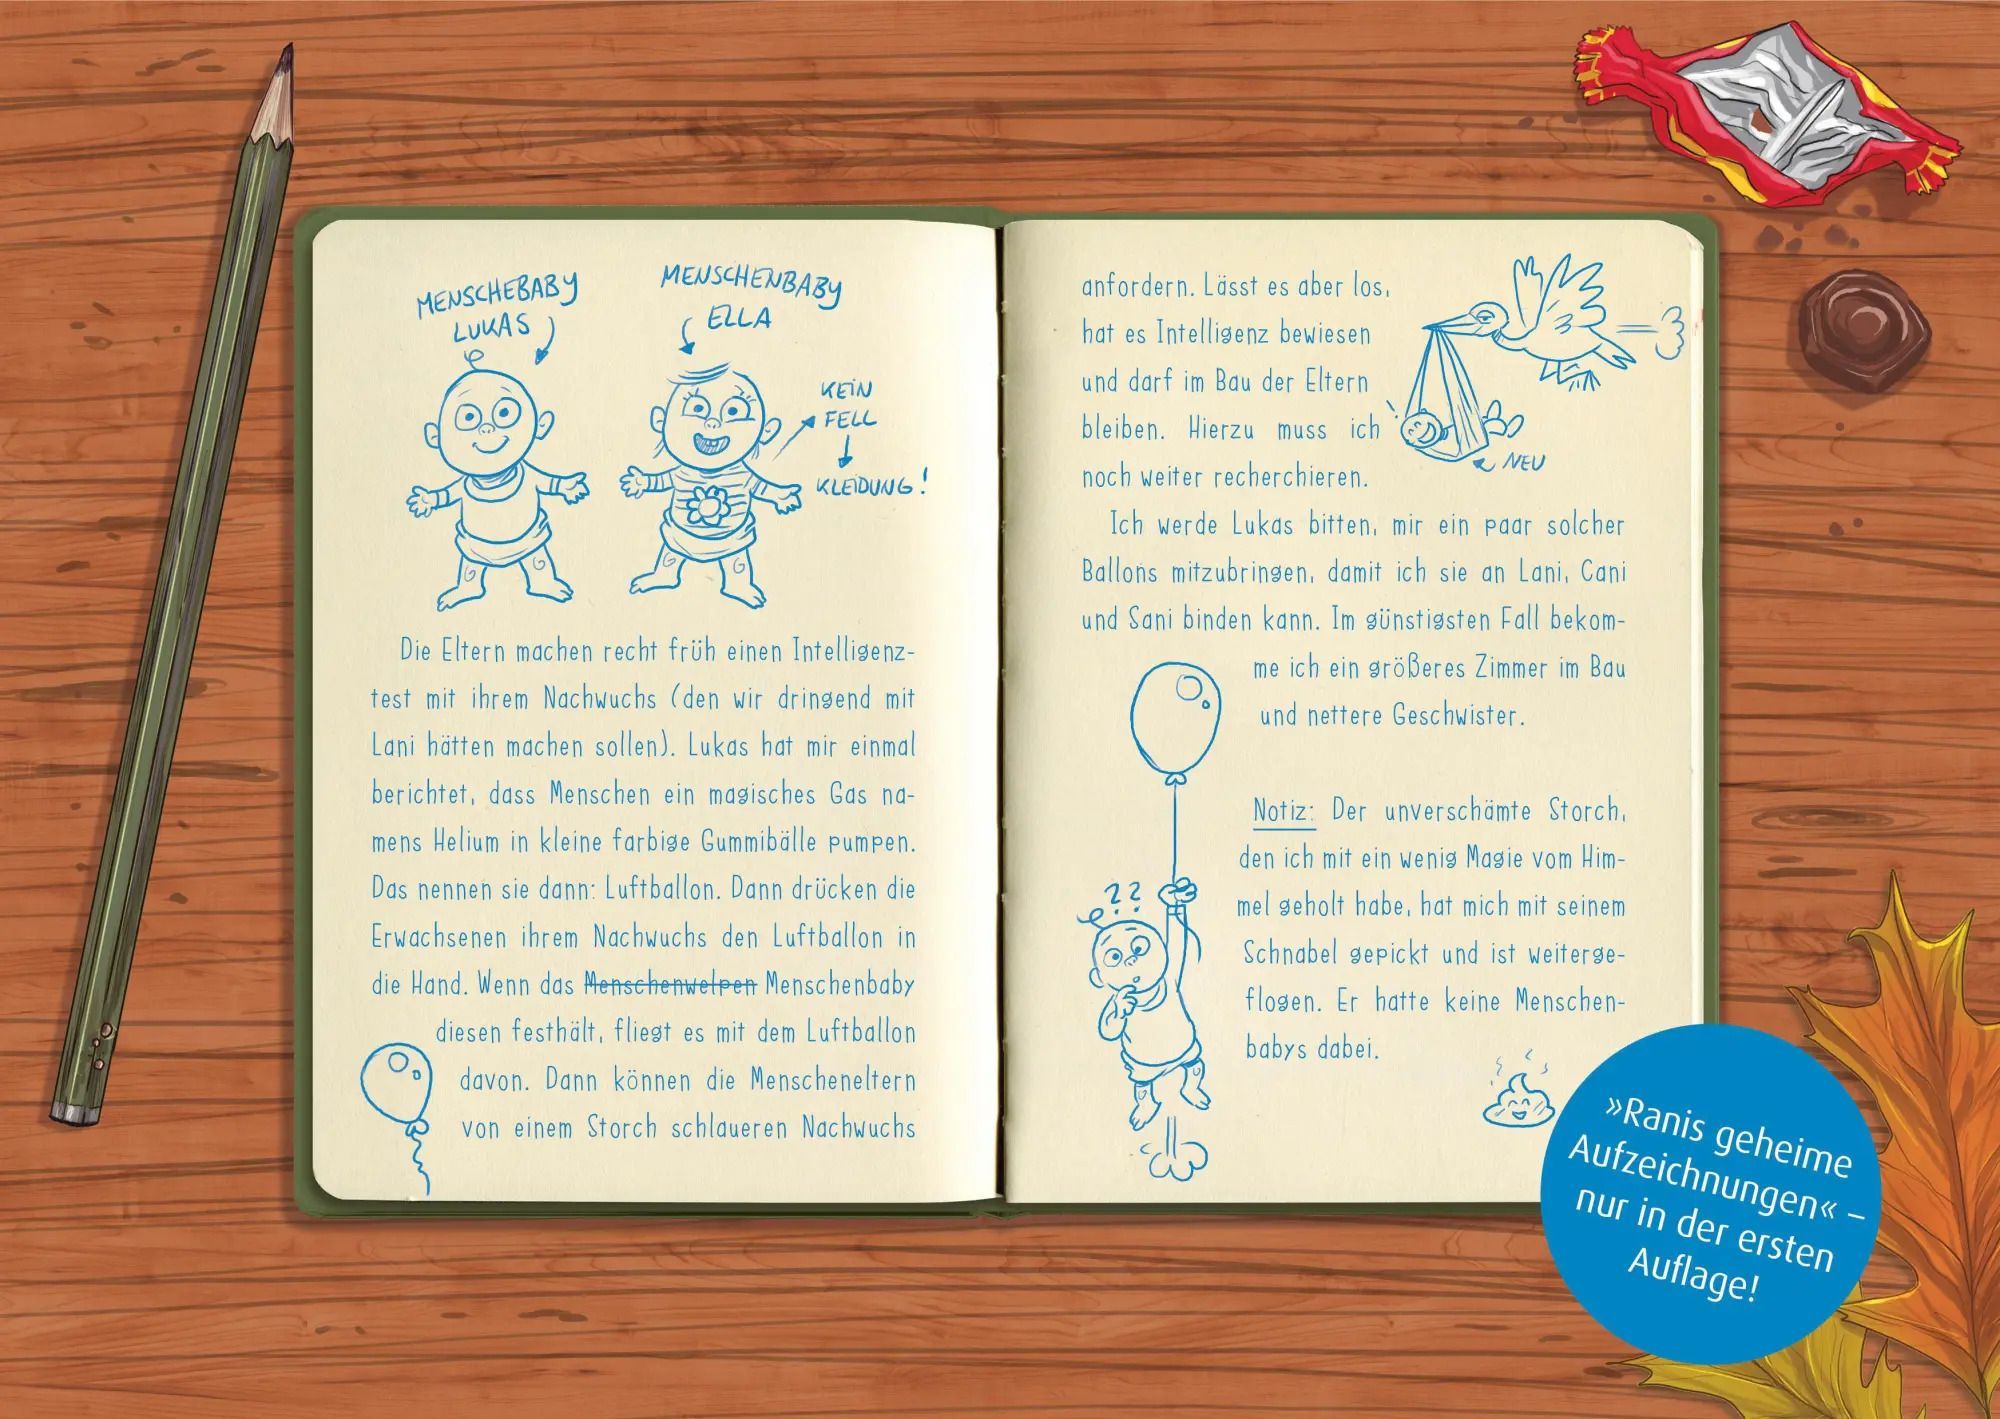 MENSCHEBABY
LUKAS
MENSCHENBABY
ELLA
KEIN
FELL
KLEIDUNG!
Die Eltern machen recht früh einen Intelligenz-
test mit ihrem Nachwuchs (den wir dringend mit
Lani hätten machen sollen). Lukas hat mir einmal
berichtet, dass Menschen ein magisches Gas na-
mens Helium in kleine farbige Gummibälle pumpen.
Das nennen sie dann: Luftballon. Dann drücken die
Erwachsenen ihrem Nachwuchs den Luftballon in
die Hand. Wenn das Menschenwelpen Menschenbaby
diesen festhält, fliegt es mit dem Luftballon
davon. Dann können die Menscheneltern
von einem Storch schlaueren Nachwuchs
anfordern. Lässt es aber los,
hat es Intelligenz bewiesen
und darf im Bau der Eltern
bleiben. Hierzu muss ich
noch weiter recherchieren.
NEU
Ich werde Lukas bitten, mir ein paar solcher
Ballons mitzubringen, damit ich sie an Lani, Cani
und Sani binden kann. Im günstigsten Fall bekom-
me ich ein größeres Zimmer im Bau
und nettere Geschwister.
??
Notiz: Der unverschämte Storch,
den ich mit ein wenig Magie vom Him-
mel geholt habe, hat mich mit seinem
Schnabel gepickt und ist weiterge-
flogen. Er hatte keine Menschen-
babys dabei.
»Ranis geheime
Aufzeichnungen« –
nur in der ersten
Auflage!